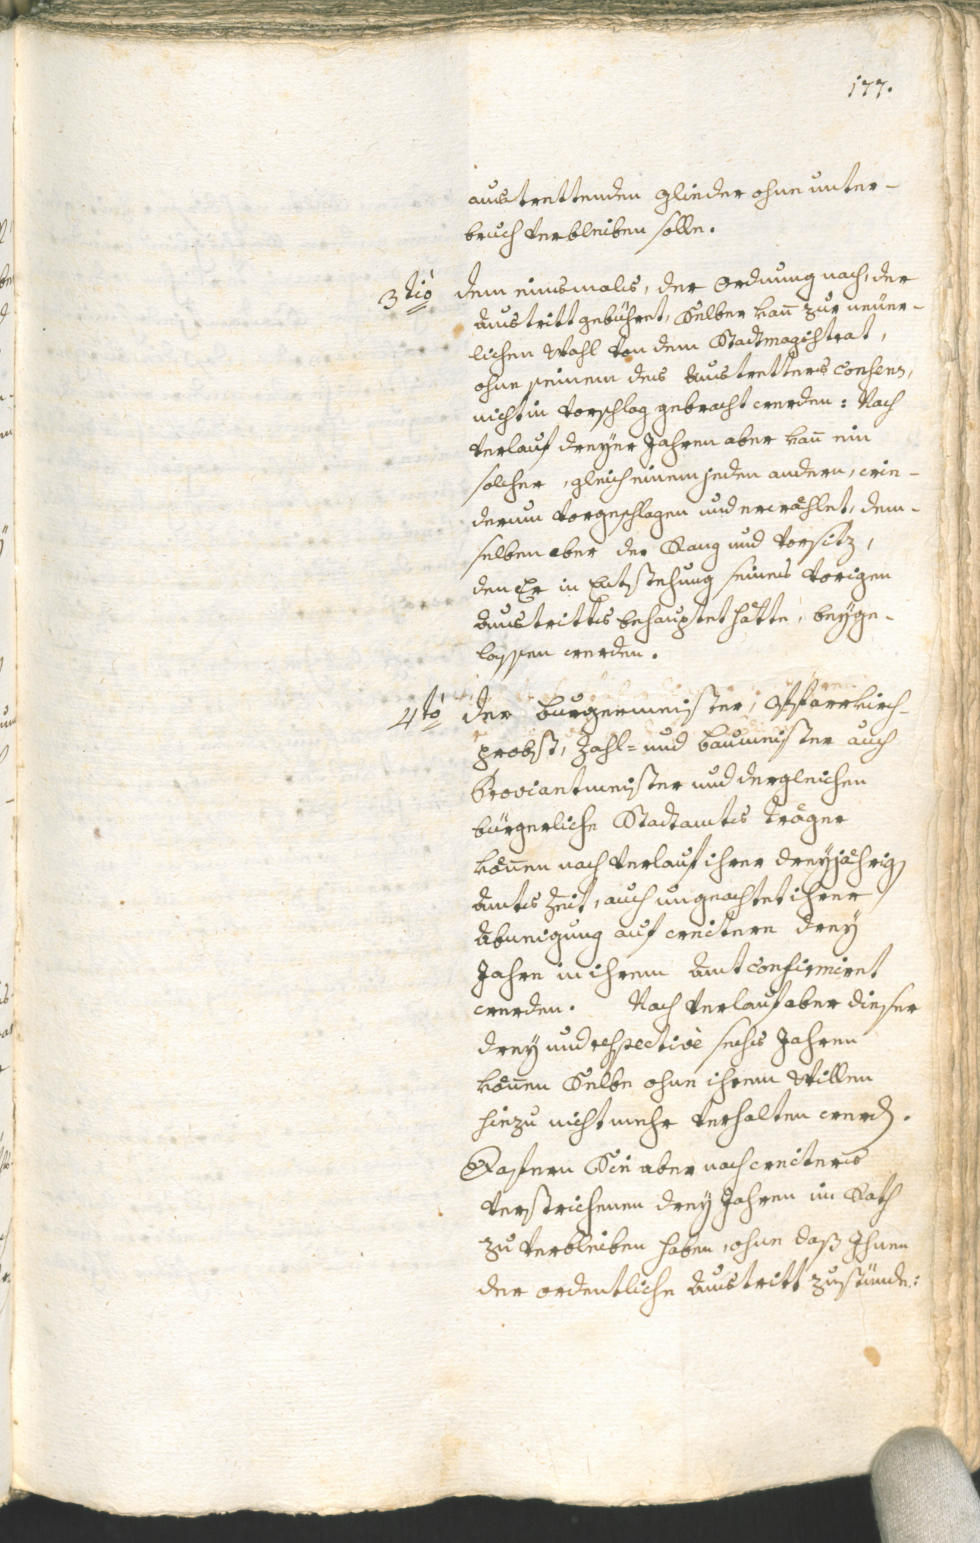 177.
austrettenden glieder ohne unter-
bruch verbleiben solle.
3tiò dem einsmals, der Ordnung nach, der
Austritt gebühret, Selber kan̄ zur neüer-
lichen Wahl von dem Stadtmagistrat,
ohne seinem des Austretters Consens,
nicht in Vorschlag gebracht werden: Nach
Verlauf dreyer Jahren aber kan̄ ein
solcher, gleich einem jeden andern, wie-
derum vorgeschlagen und erwählet, dem-
selben aber der Rang und Vorsitz,
den Er in Entstehung seines vorigen
Austritts behauptet hätte, beyge-
lassen werden.
4tò der Burgermeister, Pfarrkirch-
probst, Zahl- und Baumeister auch
Proviantmeister und dergleichen
bürgerliche Stadtamts Träger
kön̄en nach Verlauf ihrer dreyjährig
Amts Zeit, auch ungeachtet ihrer
Abneigung auf weitere drey
Jahre in ihrem Amt confirmiret
werden. Nach Verlauf aber dieser
drey und respective sechs Jahren
kön̄en Selbe ohne ihrem Willen
hiezu nicht mehr verhalten werd.
Dafern Sie aber nach weiters
verstrichenen drey Jahren im Rath
zu verbleiben haben, ohne daß Ihnen
der ordentliche Austritt zustünde: